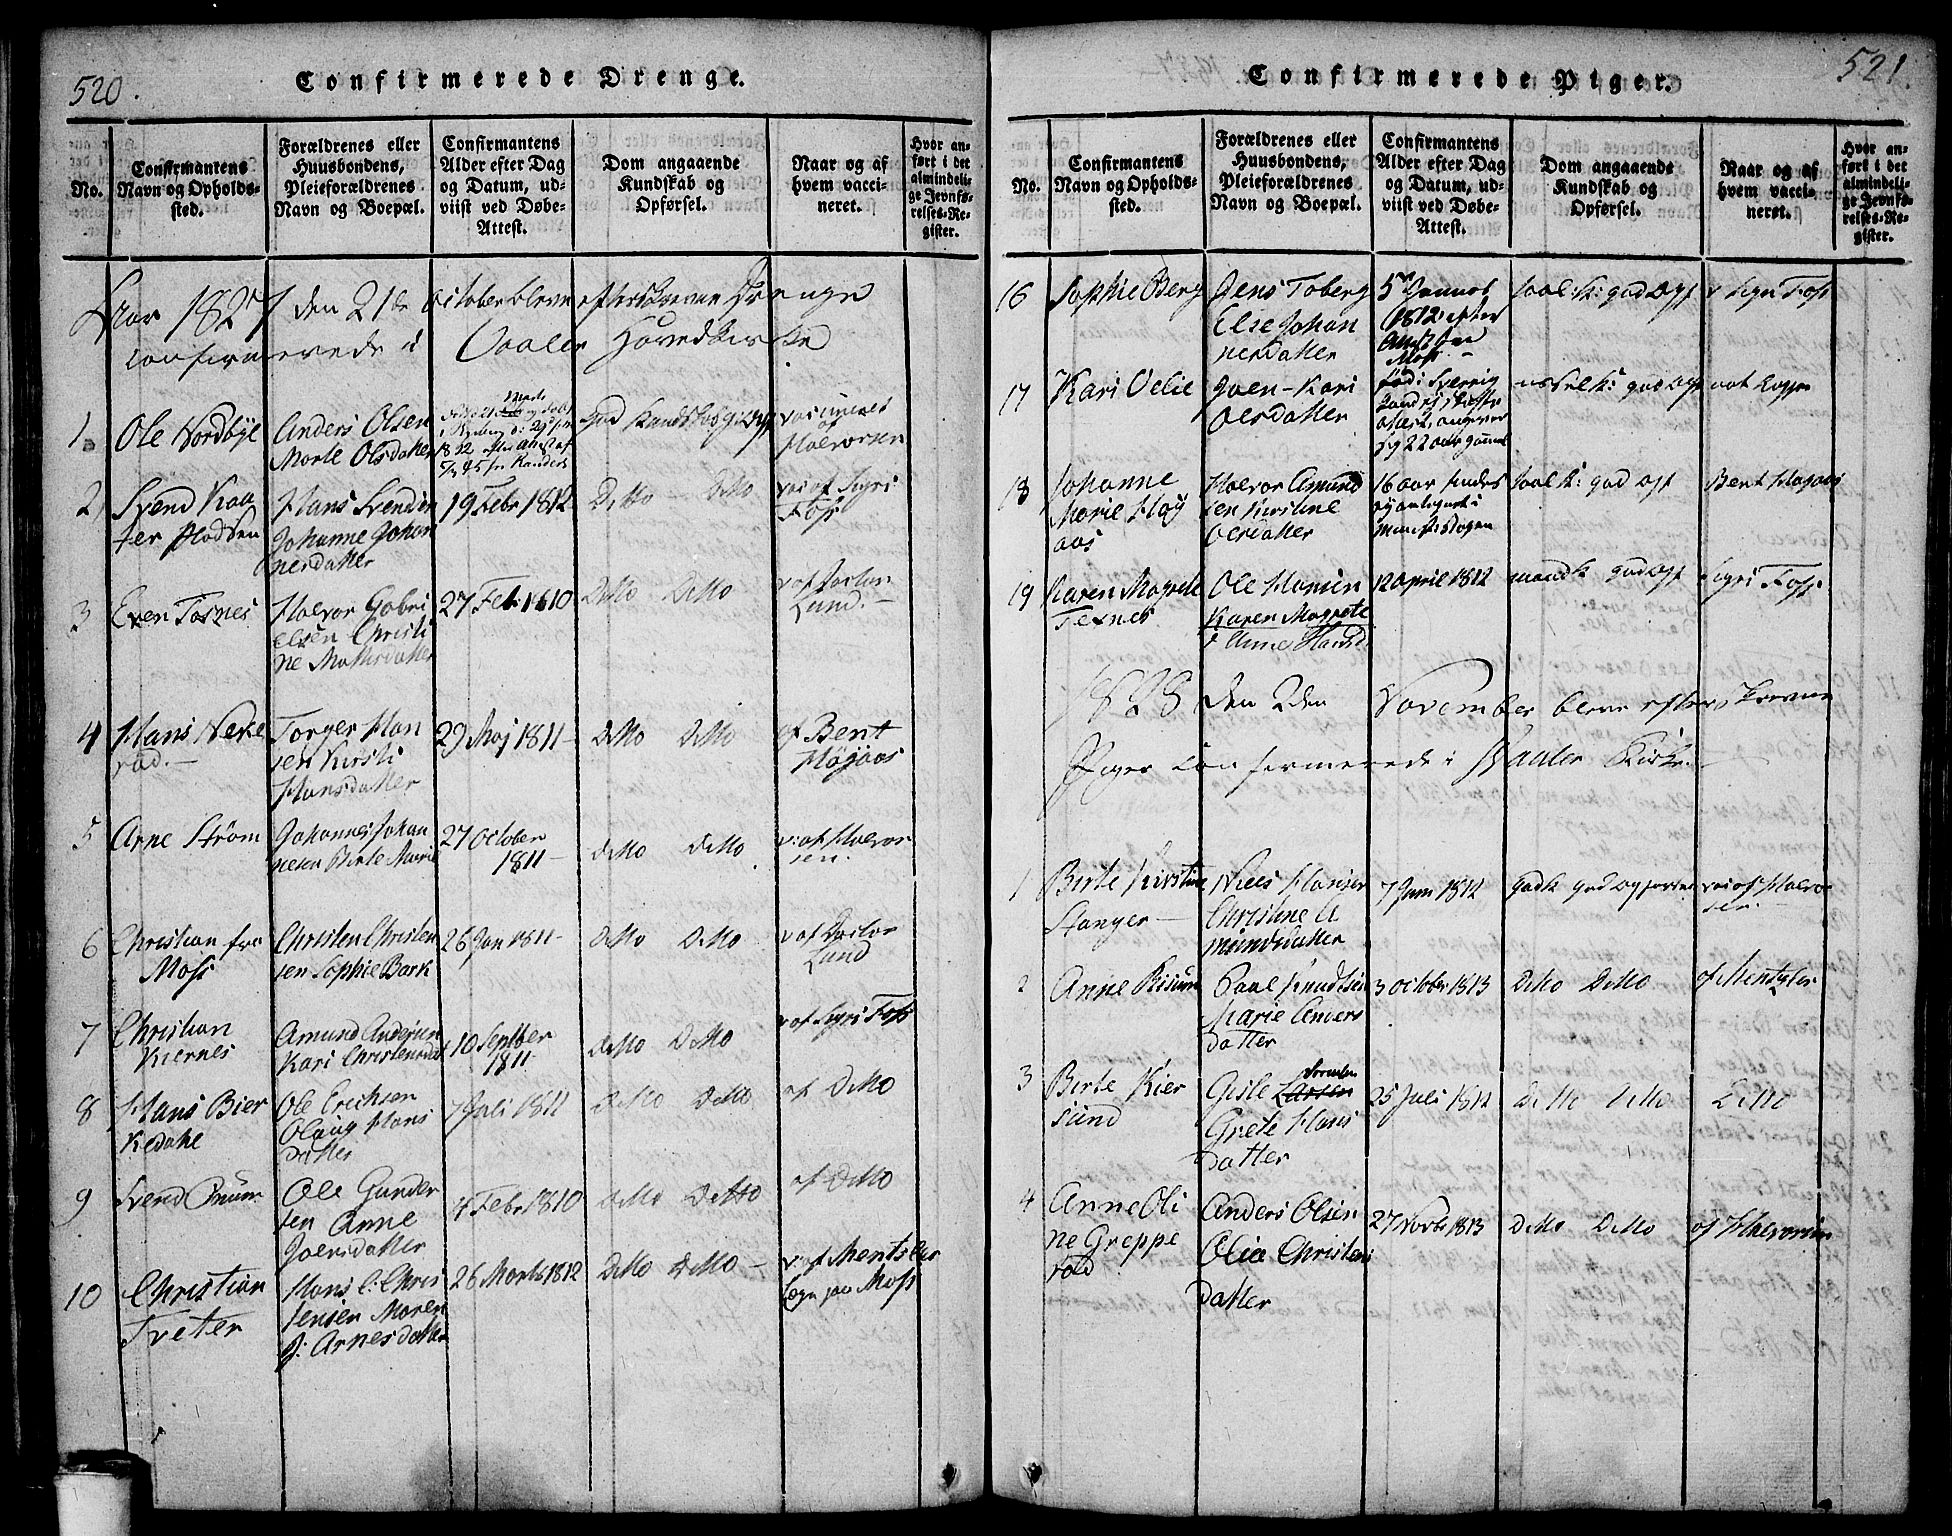 520.
Confirmerede Drenge.
No.
Confirmantens
Navn og Opholds-
sted.
Forældrenes eller
Huusbondens,
Pleieforældrenes
Navn og Boepæl.
Confirmantens
Alder efter Dag
og Datum, ud-
viist ved Døbe-
Attest.
Dom angaaende
Kundskab og
Opførsel.
Naar og af
hvem vacci-
neret.
Hvor an-
ført i det
almindeli-
ge Jevnfø-
relses-Re-
gister.
Aar 1827 den 21de October bleve efterskrevne Drenge
confirmerede i Vaaler Hovedkirke
1
Ole Nordbye
Anders Olsen
Marte Olsdatter
1812
God Kundsk og Opf
Halvorsen
2
Svend Kaa
ter Pladsen
Hans Svendsen
Johanne Johan
nesdatter
19 Febr 1812
Ditto Ditto
vac af Sigri
Foss
3
Even Tosnes
Halvor Gabri
elsen Christi
ne Mathisdatter
27 Feb 1810
Ditto Ditto
v af Doctor
Lund.
4
Hans Nere
rød.
Torger Han
sen Kirsti
Hansdatter
29 Maj 1811
Ditto Ditto
af Bent
Høgaas
5
Arne Strøm
Johannes Johan
nesen Birte Marie
27 October
1811
Ditto Ditto
v: af Halvor
sen.
6
Christian fra
Moss
Christen Christen
sen Sophie Bark
26 Jan 1811
Ditto Ditto
v af Doctor
Lund
7
Christian
Kiernes
Amund Andersen
Kari Christensdat
10 Septber
1811
Ditto Ditto
v af Sigri Foss
8
Hans Bier
kedahl
Ole Erichsen
Olaug Hans
Datter
7 Juli 1811
Ditto Ditto
af Ditto
9
Svend
Ole Gunder
sen Anne
Joensdatter
4 Febr 1810
Ditto Ditto
af Ditto
10
Christian
Tveter
Hans C: Chris
tensen Maren
J: Arnesdatter
26 Marts 1812
Ditto Ditto
v. af Mentsler
Moss
Confirmerede Piger.
521.
No.
Confirmantens
Navn og Opholds-
sted.
Forældrenes eller
Huusbondens,
Pleieforældrenes
Navn og Boepæl.
Confirmantens
Alder efter Dag
og Datum, ud-
viist ved Døbe-
Attest.
Dom angaaende
Kundskab og
Opførsel.
Naar og af
hvem vacci-
neret.
Hvor an-
ført i det
almindeli-
ge Jevnfø-
relses-Re-
gister.
16
Sophie Berg
Jens Toberg
Else Johan
nesdatter
5 Januar
1812 efter
Attest fra
Moss
god Opf
v Sigri Foss
17
Kari Velie
Joen - Kari
Olsdatter
fød i Sverrig
angiver
sig 22 aar gammel
god Opf
18
Johanne
Marie Høy
aas
Halvor Amund
sen Kirstine
Olsdatter
16 aar findes
ey anteignet i
Ministr Bogen
god opf
Bent Høgaas
19
Karen Magrete
Texnes
Ole Hansen
Karen Magrete
Anne Hansd.
12 april 1812
god Opf
Sigri Foss
1828 den 2den November bleve efterskrevne
Piger Confirmerede i Vaaler Kirke.
1
Birte Kirstine
Stanger
Niels Hansen
Christine A
mundsdatter
7 Juni 1812
God K god Opførsel
vac af Halvor
sen.
2
Anne Risum
Paul Knudsen
Marie Anders
datter
3 October 1813
Ditto Ditto
af Mentzler
3
Birte Kier
sund
Gisle Larsen
Grete Hans
datter
25 Juli 1812
Ditto Ditto
Ditto
4
Anne Oli
ne Greppe
rød
Anders Olsen
Olia Christens
datter
27 Novbr 1813
Ditto Ditto
af Halvorsen